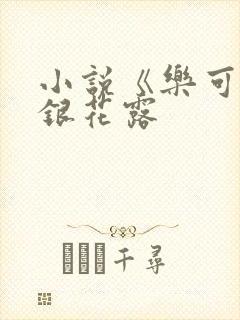 小説《樂可
銀花露
千尋